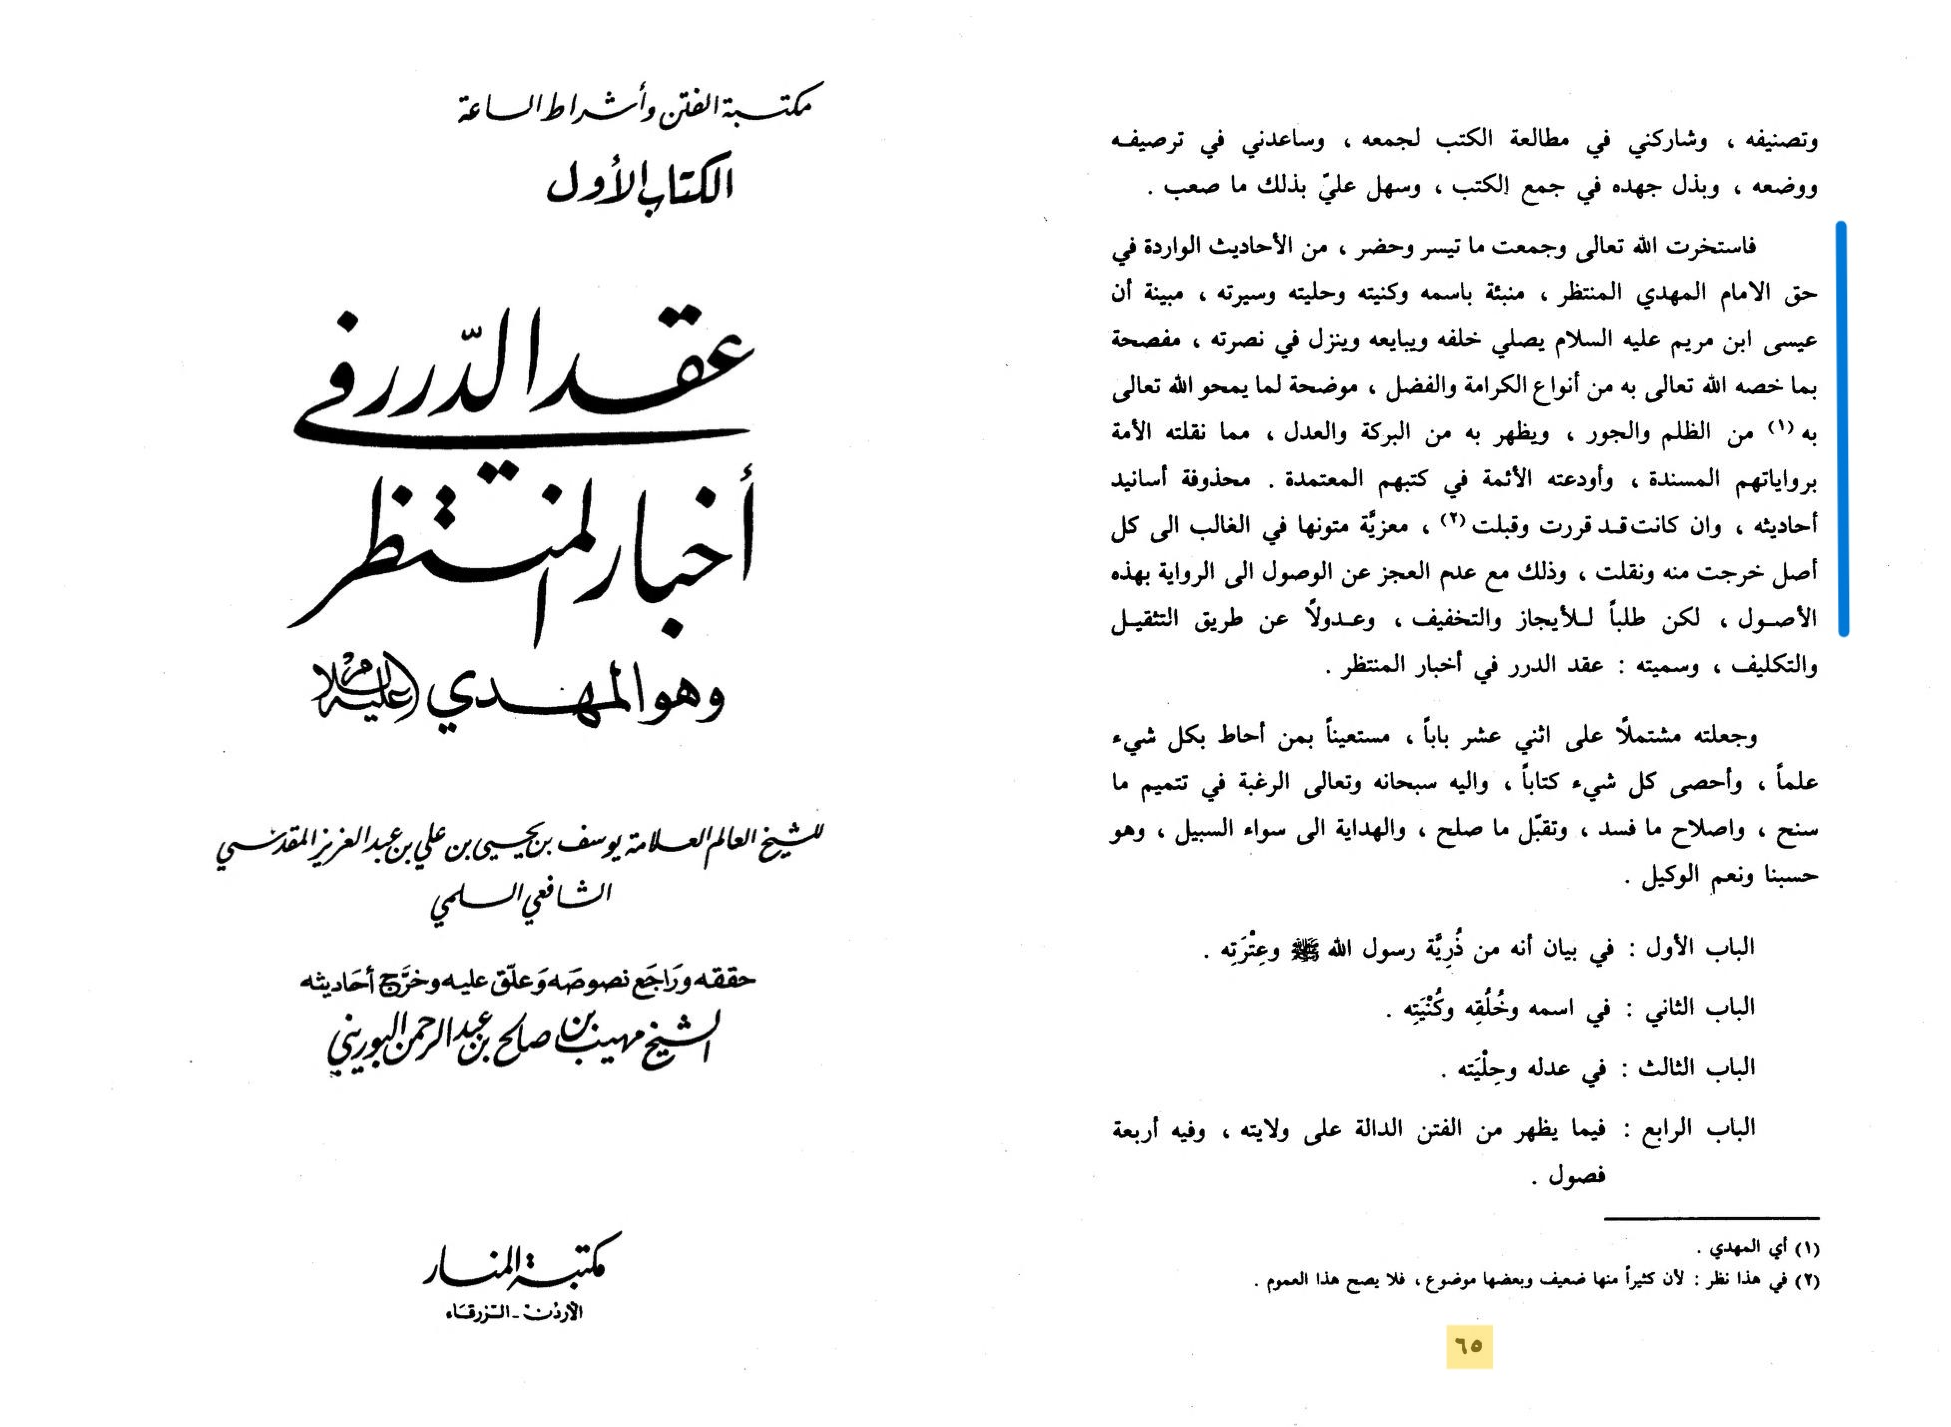 مكتبة الفتن وأشراط الساعة
الكتاب الأول
عقد الدّرر في
أخبار المنتظر
وهو المهدي (عليه السلام)
للشيخ العالم العلامة يوسف بن يحيى بن علي بن عبد العزيز المقدسي
الشافعي السلمي
حققه وَرَاجَع نصوصَه وَعلّق عليه وخرَّج أحَاديثه
الشيخ مهيب بن صالح بن عبد الرحمن البوريني
مكتبة المنار
الأردن - الزرقاء
وتصنيفه ، وشاركني في مطالعة الكتب لجمعه ، وساعدني في ترصيفه
ووضعه ، وبذل جهده في جمع الكتب ، وسهل عليّ بذلك ما صعب .
فاستخرت الله تعالى وجمعت ما تيسر وحضر ، من الأحاديث الواردة في
حق الامام المهدي المنتظر ، منبئة باسمه وكنيته وحليته وسيرته ، مبينة أن
عيسى ابن مريم عليه السلام يصلي خلفه ويبايعه وينزل في نصرته ، مفصحة
بما خصه الله تعالى به من أنواع الكرامة والفضل ، موضحة لما يمحو الله تعالى
به (١) من الظلم والجور ، ويظهر به من البركة والعدل ، مما نقلته الأمة
برواياتهم المسندة ، وأودعته الأئمة في كتبهم المعتمدة . محذوفة أسانيد
أحاديثه ، وان كانت قد قررت وقبلت (٢) ، معزيَّة متونها في الغالب الى كل
أصل خرجت منه ونقلت ، وذلك مع عدم العجز عن الوصول الى الرواية بهذه
الأصول ، لكن طلباً للأيجاز والتخفيف ، وعدولاً عن طريق التثقيل
والتكليف ، وسميته : عقد الدرر في أخبار المنتظر .
وجعلته مشتملاً على اثني عشر باباً ، مستعيناً بمن أحاط بكل شيء
علماً ، وأحصى كل شيء كتاباً ، واليه سبحانه وتعالى الرغبة في تتميم ما
سنح ، واصلاح ما فسد ، وتقبّل ما صلح ، والهداية الى سواء السبيل ، وهو
حسبنا ونعم الوكيل .
الباب الأول : في بيان أنه من ذُرِيَّة رسول الله ﷺ وعِتْرَتِه .
الباب الثاني : في اسمه وخُلُقِه وكُنْيَتِه .
الباب الثالث : في عدله وحِلْيَته .
الباب الرابع : فيما يظهر من الفتن الدالة على ولايته ، وفيه أربعة
فصول .
(١) أي المهدي .
(٢) في هذا نظر : لأن كثيراً منها ضعيف وبعضها موضوع ، فلا يصح هذا العموم .
٦٥